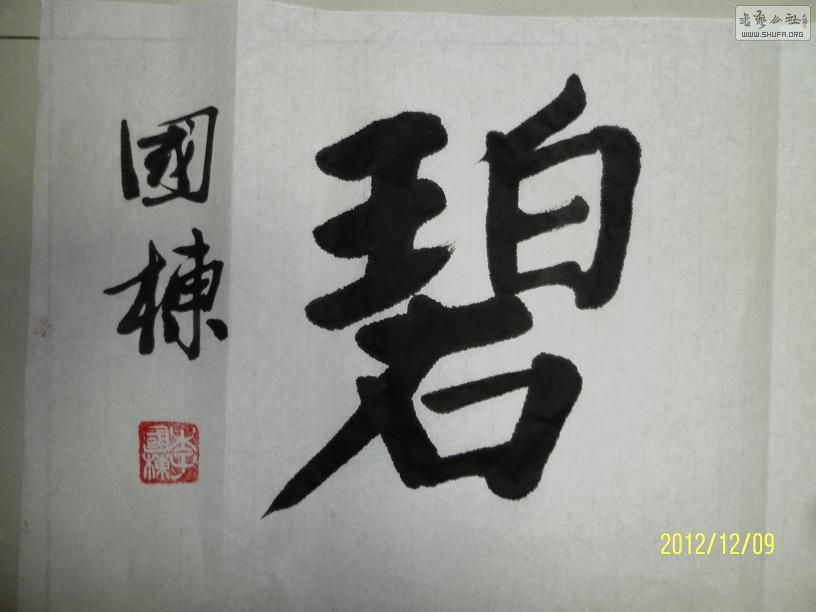 碧
國棟
李國棟
書藝公社
WWW.SHUFA.ORG
2012/12/09